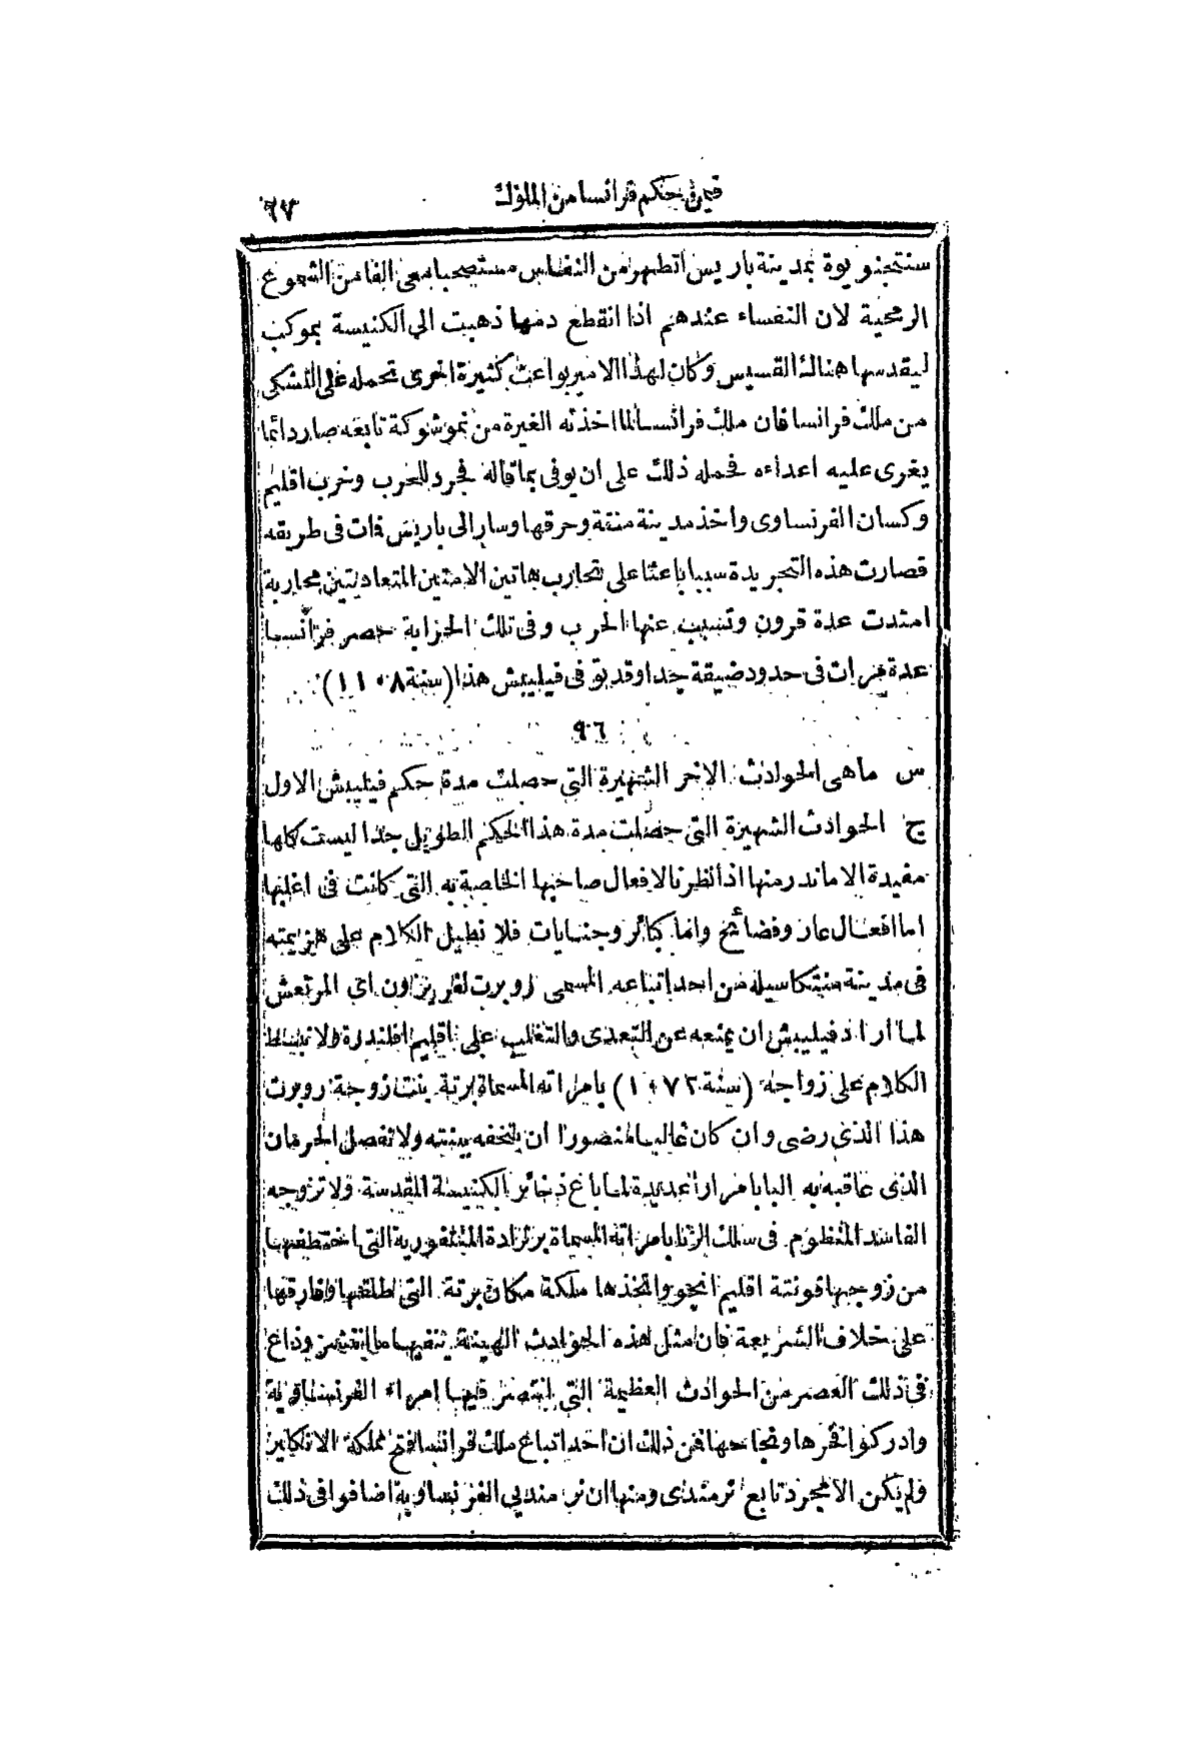 فيمن حكم فرانسا من الملوك
٦٧
سنتجنويوة بمدينة باريس اتطهر من النفاس مستصحبا معى الفا من الشموع
الرمحية لان النفساء عندهم اذا انقطع دمها ذهبت الى الكنيسة بموكب
ليقدسها هنالك القسيس وكان لهذا الامير بواعث كثيرة اخرى تحمله على التشكى
من ملك فرانسا فان ملك فرانسا لما اخذته الغيرة من نمو شوكة تابعه صار دائما
يغرى عليه اعداءه فحمله ذلك على ان يوفى بما قاله فجرد للحرب وخرب اقليم
وكسان الفرنساوى واخذ مدينة منتة وحرقها وسار الى باريس فات فى طريقه
فصارت هذه التجريدة سببا باعثا على تحارب هاتين الامتين المتعاديتين محاربة
امتدت عدة قرون وتسبب عنها الحرب وفى تلك الحرابة حصر فرانسا
عدة مرات فى حدود ضيقة جدا وقد بقى فيليبش هذا (سنة ١١٠٨)
٩٦
س ماهى الحوادث الاخر الشهيرة التى حصلت مدة حكم فيليبش الاول
ج الحوادث الشهيرة التى حصلت مدة هذا الحكم الطويل جدا ليست كلها
مفيدة الا ماندر منها اذا نظرنا لافعال صاحبها الخاصة به التى كانت فى اغلبها
اما افعال عار وفضائح واما كبائر وجنايات فلا نطيل الكلام على هزيمته
فى مدينة منتكاسيله من احد اتباعه المسمى روبرت لفريزون اى المرتعش
لما اراد فيليبش ان يمنعه عن التعدى والتغلب على اقليم افلندرة ولا نبسط
الكلام على زواجه (سنة ١٠٧٢) بامراته المسماة برتة بنت زوجة روبرت
هذا الذى رضى وان كان غالبا منصورا ان يتحفه ببنته ولا نفصل الحرمان
الذى عاقبه به البابا مرارا عديدة لما باع ذخائر الكنيسة المقدسة ولا تزوجه
الفاسد المنظوم فى سلك الزنا بامراته المسماة برترادة المنتفورية التى اختطفها
من زوجها قونتة اقليم انجو واتخذها ملكة مكان برتة التى طلقها وفارقها
على خلاف الشريعة فان مثل هذه الحوادث الهينة تنفيها ما انتشر وذاع
فى ذلك العصر من الحوادث العظيمة التى انتصر فيها امراء الفرنساوية
وادركوا فخرها ونجاحها فمن ذلك ان احد اتباع ملك فرانسا فتح مملكة الانكليز
ولم يكن الا مجرد تابع نرمندى ومنها ان نرمنديى الفرنساوية اضافوا فى ذلك